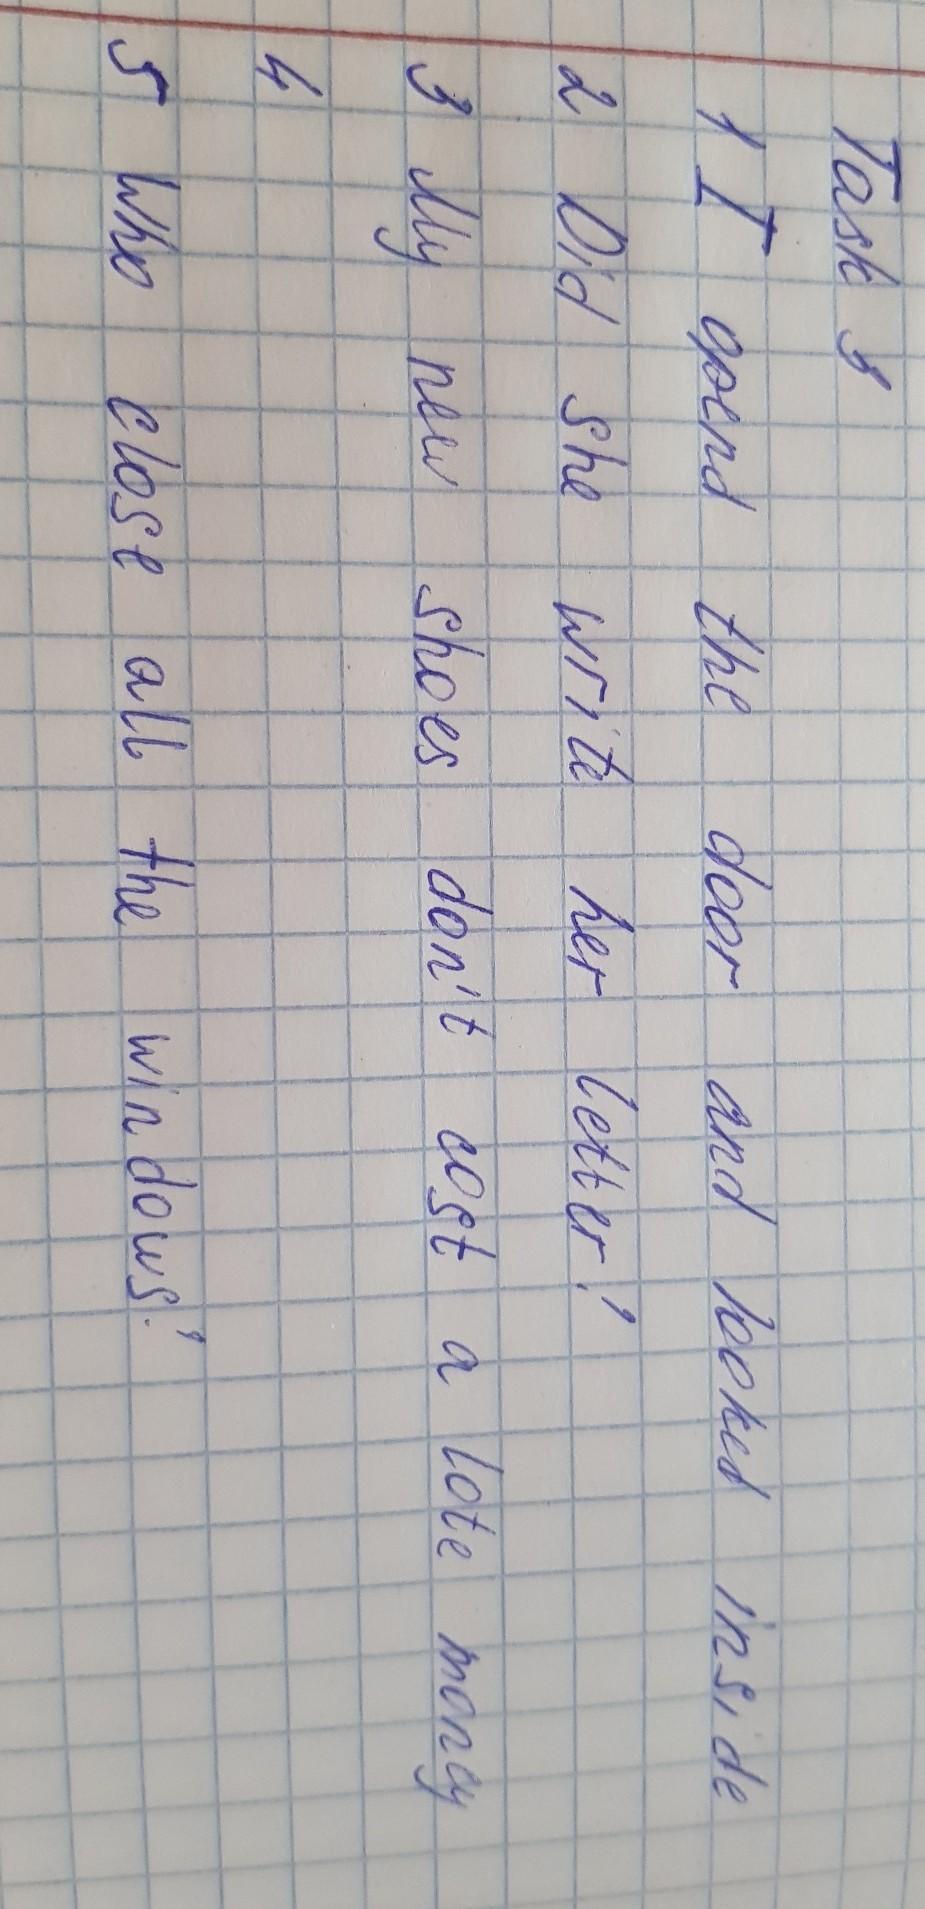 Task 3
1 I goend the door and looked inside
2 Did she write her letter?
3 My new shoes don't cost a lote mony
4
5 Who close all the windows?